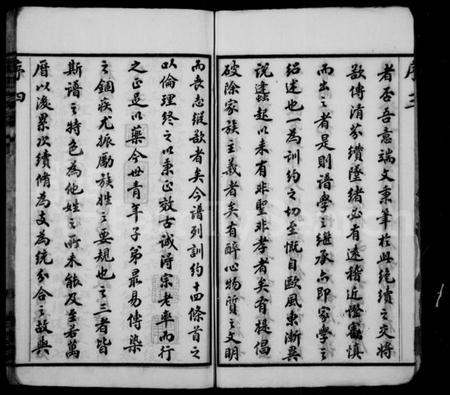 序三
者否吾意瑞文秉筆於此絕續之交將
欲傳清芬纘墜緒必有遠稽近證審慎
而出之者是則譜學之繼承亦即家學之
紹述也一為訓約之切至慨自歐風東漸異
說蠭起以來有非聖非孝者矣有提倡
破除家族主義者矣有醉心物質之文明
而喪志縱欲者矣今譜列訓約十四條首之
以倫理終之以秉正放古誡淂宗老率而行
之正足以藥今世青年子弟最易傳染
之錮疾尤振勵族姓之要規也之三者皆
斯譜之特色為他姓之所未能及至若萬
曆以後累次續脩為支為統分合之故與
序四